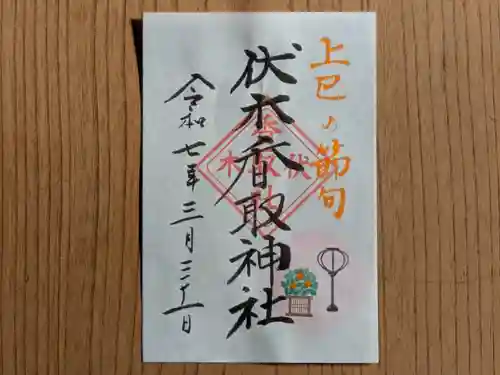 上巳の節句
伏木香取神社
令和七年三月二十一日